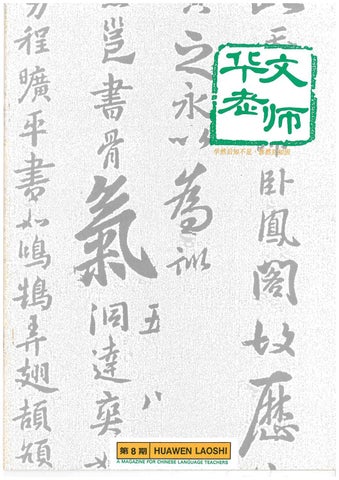 华文
老师
学然后知不足，教然后知困
卧鳳閣故歷
之永以為訓
五八
邕書骨氣洞達爽
方程曠平書如鴻鵠弄翅頡頏
第8期 HUAWEN LAOSHI
A MAGAZINE FOR CHINESE LANGUAGE TEACHERS